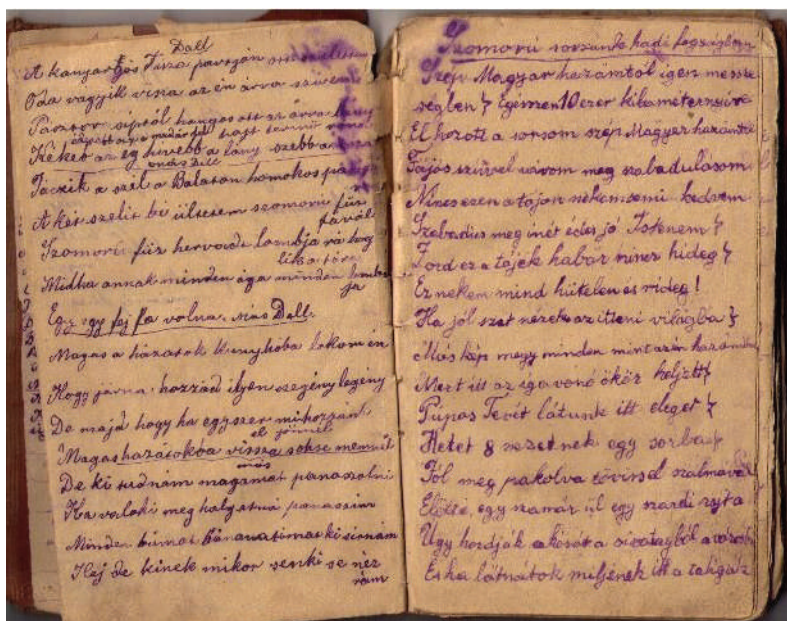 Dall
A kanyargós Tisza partján ott születtem
Oda vágyik visza az én árva szüvem
Pásztor siptól hangos ott az árva lány
Kéket az ég hivebb a lány szebb a
más Dall
Játczik a szél a Balaton homokos
A két szelit bé ültetem szomorú fűz
fával
Szomorú fűz hervadt lombja rá
Midha annak minden ága minden lombja
Egy egy fej fa volna. Más Dall.
Magas a házatok Kunyhóba lakom én
Hogy járna hozzád ilyen szegény legény
De majd hogy ha egyszer mihozzánk
el jönnél
Magas házatokba vissza sohse mennél
más
De ki tudnám magamat panaszolni
Ha valaki meg halgatná panaszim
Minden búmat bánatimat ki sirnám
Hej de kinek mikor senki se néz
rám
Szomorú sorsunk a hadi fogságban
Szép Magyar hazámtól igen messze
végben Egészen 10 ezer kilaméternyire
El hozott a sorsom szép Magyar hazámtól
Fájós szüvvel várom meg szabadulásom
Nincs ezen a tájon nékem semi kedvem
Szabadics meg inét édes jó Istenem
Zord ez a tájék habár nincs hideg
Ez nekem mind hütelen es rideg!
Ha jól szet nézek az itteni világba
Más kép megy minden mint azén hazámba
Mert itt az igavonó ökör helyett
Púpos Tevét látunk itt eleget
Hetet 8 vezetnek egy sorba
Jól meg pakolva tövissel szalmával
Előtte, egy szamár ül egy szardi rajta
Úgy hordják a a sivatagból a városba
És ha látnátok miljenek itt a taligák